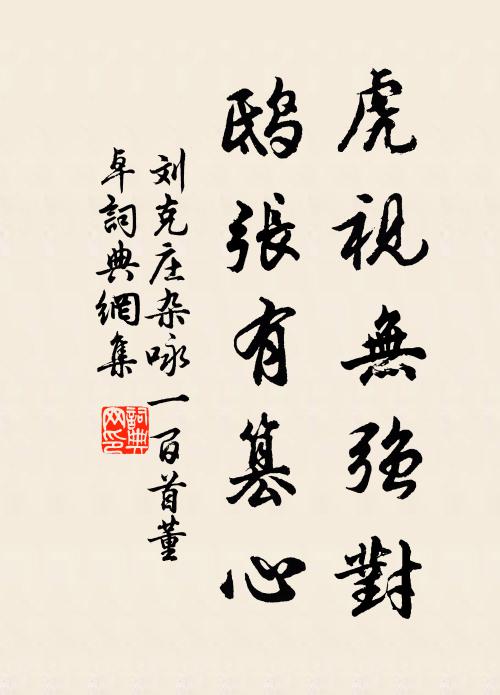 虎視無強對
鴟張有篡心
刘克庄杂咏一百首董
卓詞典網集
詞典网印